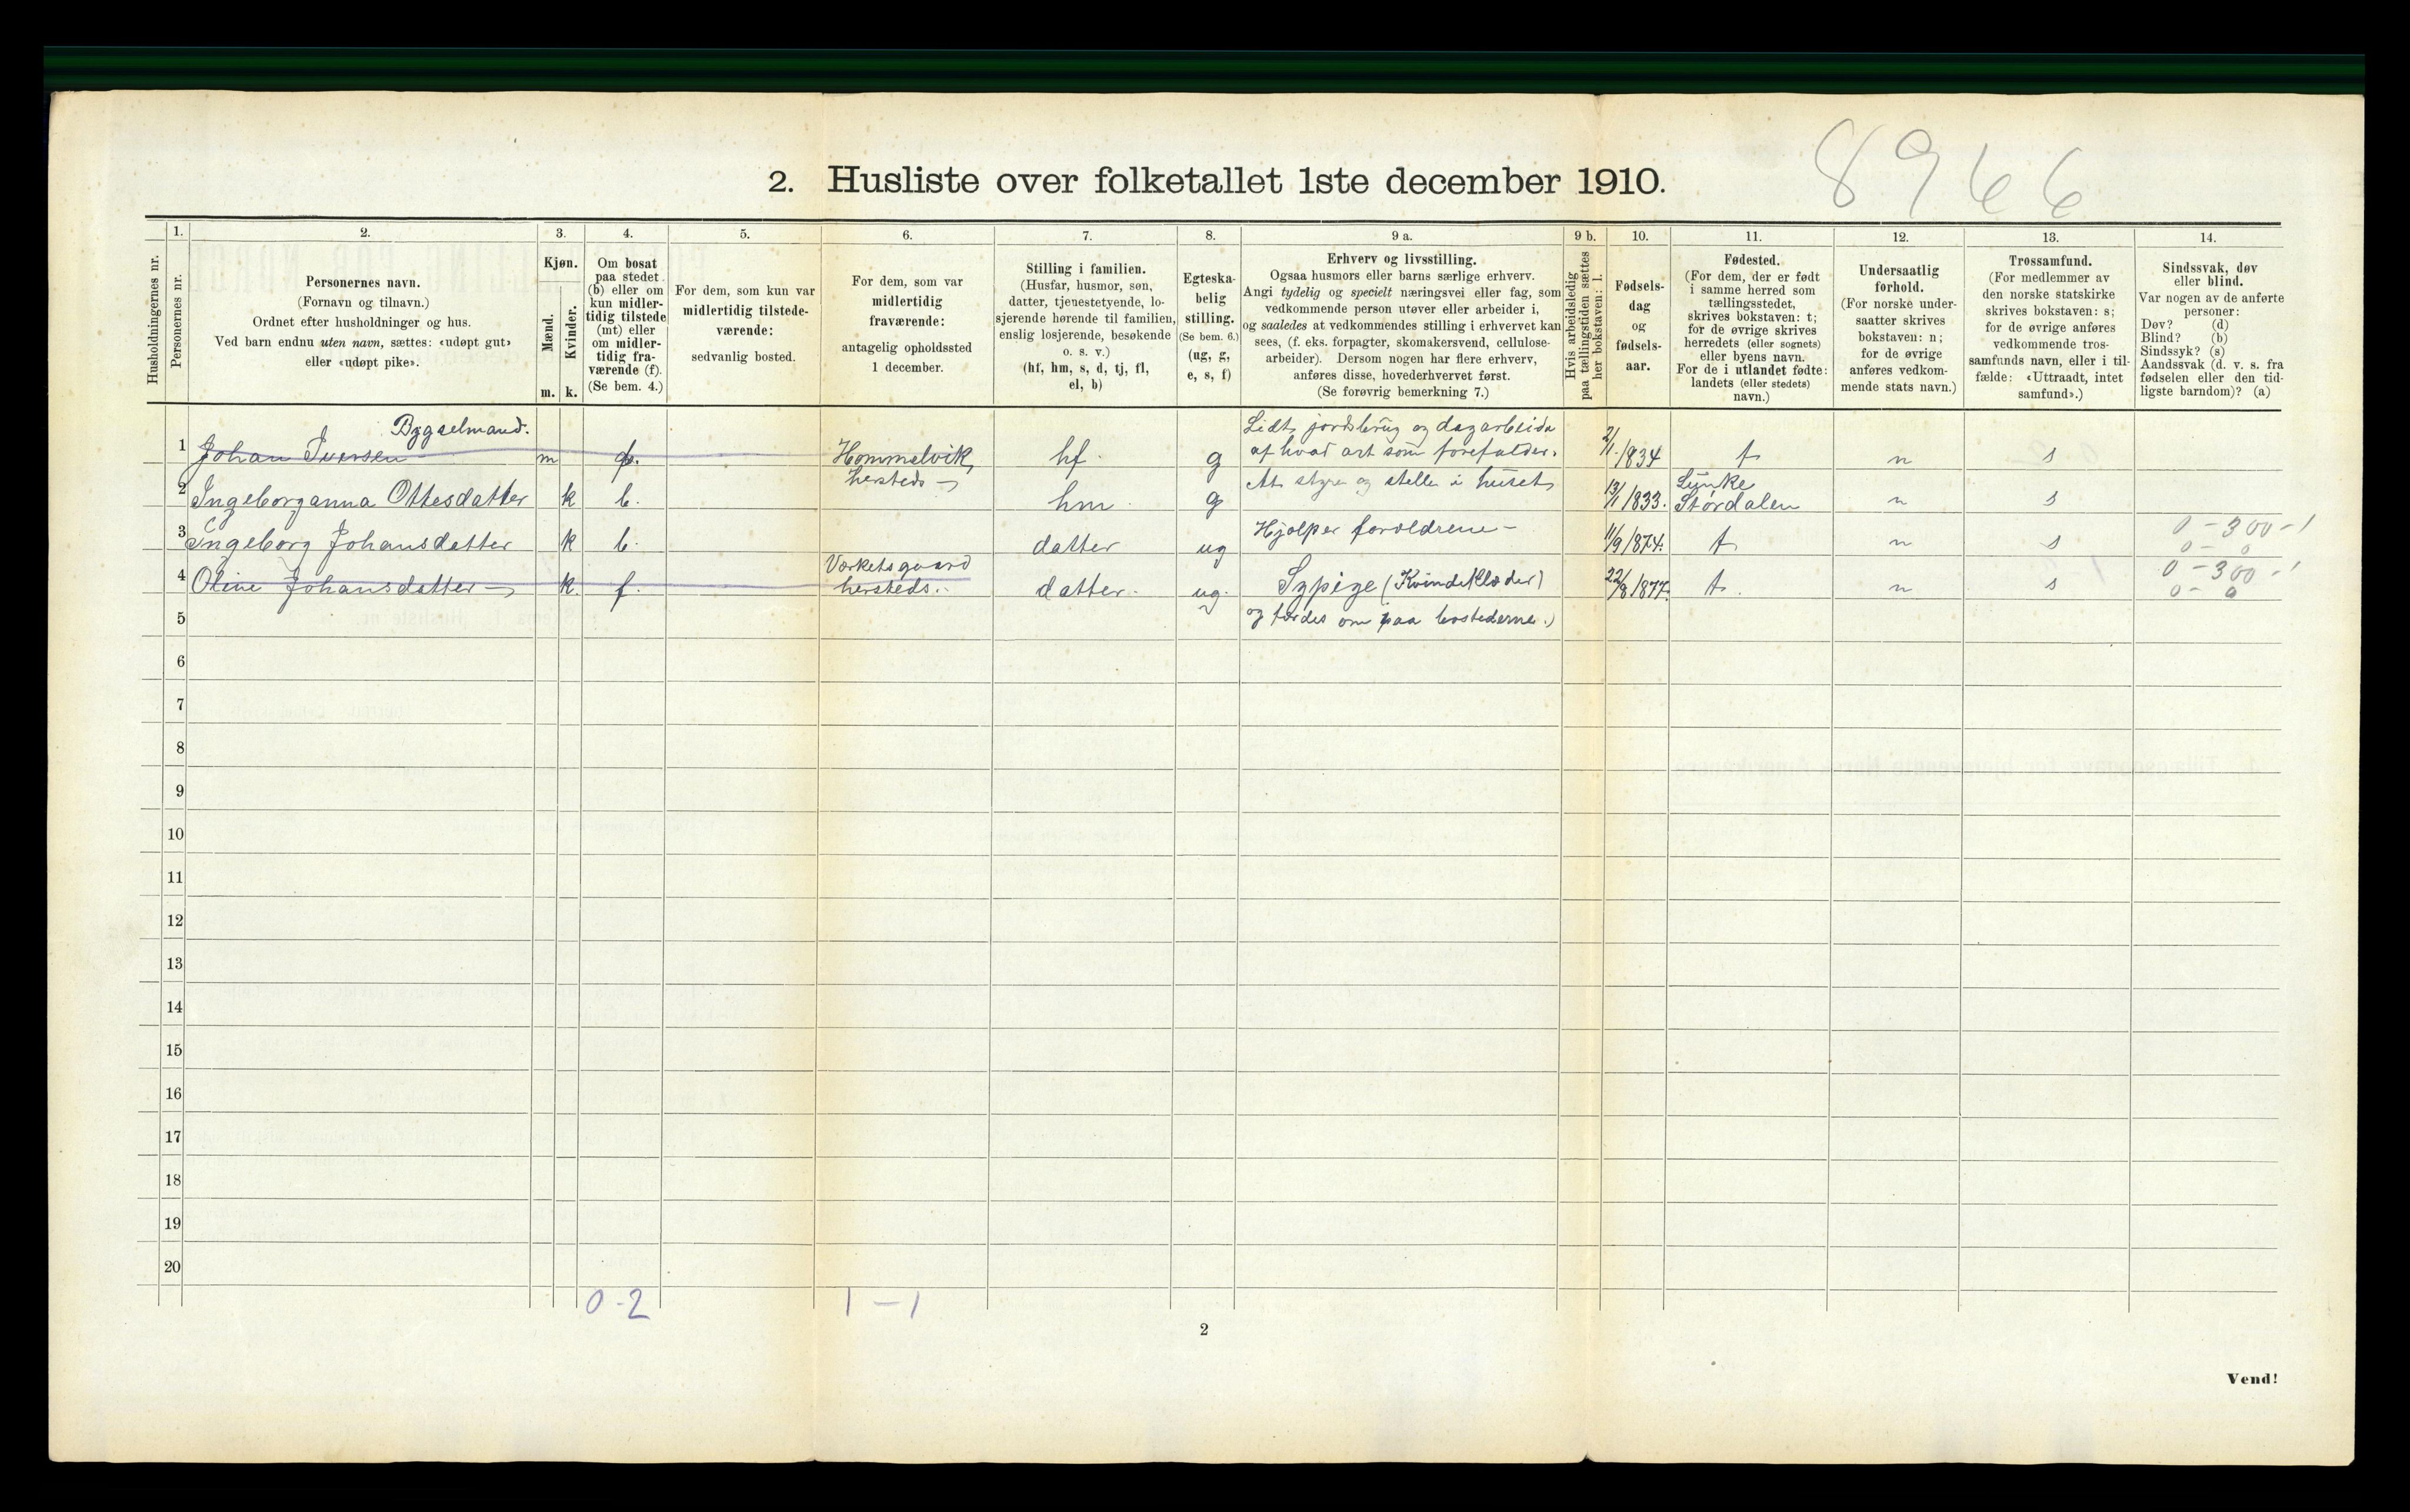 8966
2. Husliste over folketallet 1ste december 1910.
Husholdningernes nr.
1.
Personernes nr.
2.
Personernes navn.
(Fornavn og tilnavn.)
Ordnet efter husholdninger og hus.
Ved barn endnu uten navn, sættes: «udøpt gut»
eller «udøpt pike».
3.
Kjøn.
Mænd.
Kvinder.
m. k.
4.
Om bosat
paa stedet
(b) eller om
kun midler-
tidig tilstede
(mt) eller
om midler-
tidig fra-
værende (f).
(Se bem. 4.)
5.
For dem, som kun var
midlertidig tilstede-
værende:
sedvanlig bosted.
6.
For dem, som var
midlertidig
fraværende:
antagelig opholdssted
1 december.
7.
Stilling i familien.
(Husfar, husmor, søn,
datter, tjenestetyende, lo-
sjerende hørende til familien,
enslig losjerende, besøkende
o. s. v.)
(hf, hm, s, d, tj, fl,
el, b)
8.
Egteska-
belig
stilling.
(Se bem. 6.)
(ug, g,
e, s, f)
9 a.
Erhverv og livsstilling.
Ogsaa husmors eller barns særlige erhverv.
Angi tydelig og specielt næringsvei eller fag, som
vedkommende person utøver eller arbeider i,
og saaledes at vedkommendes stilling i erhvervet kan
sees, (f. eks. forpagter, skomakersvend, cellulose-
arbeider). Dersom nogen har flere erhverv,
anføres disse, hovederhvervet først.
(Se forøvrig bemerkning 7.)
9 b.
Hvis arbeidsledig
paa tællingstiden sættes
her bokstaven: l.
10.
Fødsels-
dag
og
fødsels-
aar.
11.
Fødested.
(For dem, der er født
i samme herred som
tællingsstedet,
skrives bokstaven: t;
for de øvrige skrives
herredets (eller sognets)
eller byens navn.
For de i utlandet fødte:
landets (eller stedets)
navn.)
12.
Undersaatlig
forhold.
(For norske under-
saatter skrives
bokstaven: n;
for de øvrige
anføres vedkom-
mende stats navn.)
13.
Trossamfund.
(For medlemmer av
den norske statskirke
skrives bokstaven: s;
for de øvrige anføres
vedkommende tros-
samfunds navn, eller i til-
fælde: «Uttraadt, intet
samfund».)
14.
Sindssvak, døv
eller blind.
Var nogen av de anførte
personer:
Døv? (d)
Blind? (b)
Sindssyk? (s)
Aandssvak (d. v. s. fra
fødselen eller den tid-
ligste barndom)? (a)
Bygselmand.
1 Johan Iversen m f. Hommelvik, hersteds hf. g Lidt jordsbrug og dagarbeide
af hvad art som forefalder. 2/1 1834 t n s
2 Ingeborganna Ottesdatter k b. hm. g At styre og stelle i huset 13/1 1833. Størdalen n s
3 Ingeborg Johansdatter k b. datter ug Hjælper forældrene - 11/9 1874. t n s 0-300-1
0-0
4 Oline Johansdatter k. f. Værketsgaard
hersteds. datter. ug. Sypige (Kvindeklæder) 22/8 1877. t. n s 0-300-1
0-0
5 og færdes om paa bostederne.)
6
7
8
9
10
11
12
13
14
15
16
17
18
19
20
0-2 1-1
2
Vend!